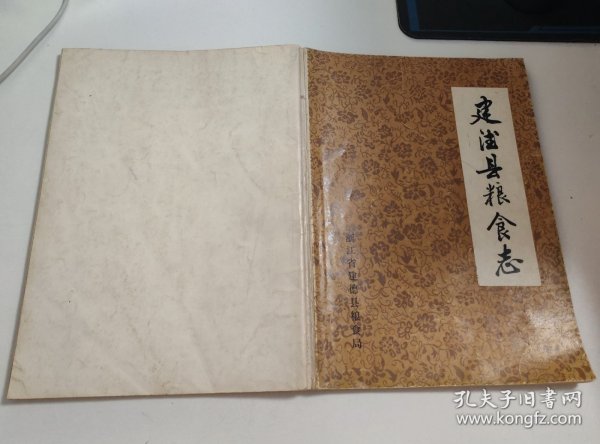 建德县粮食志
浙江省建德县粮食局
孔夫子旧书网
www.kongfz.com